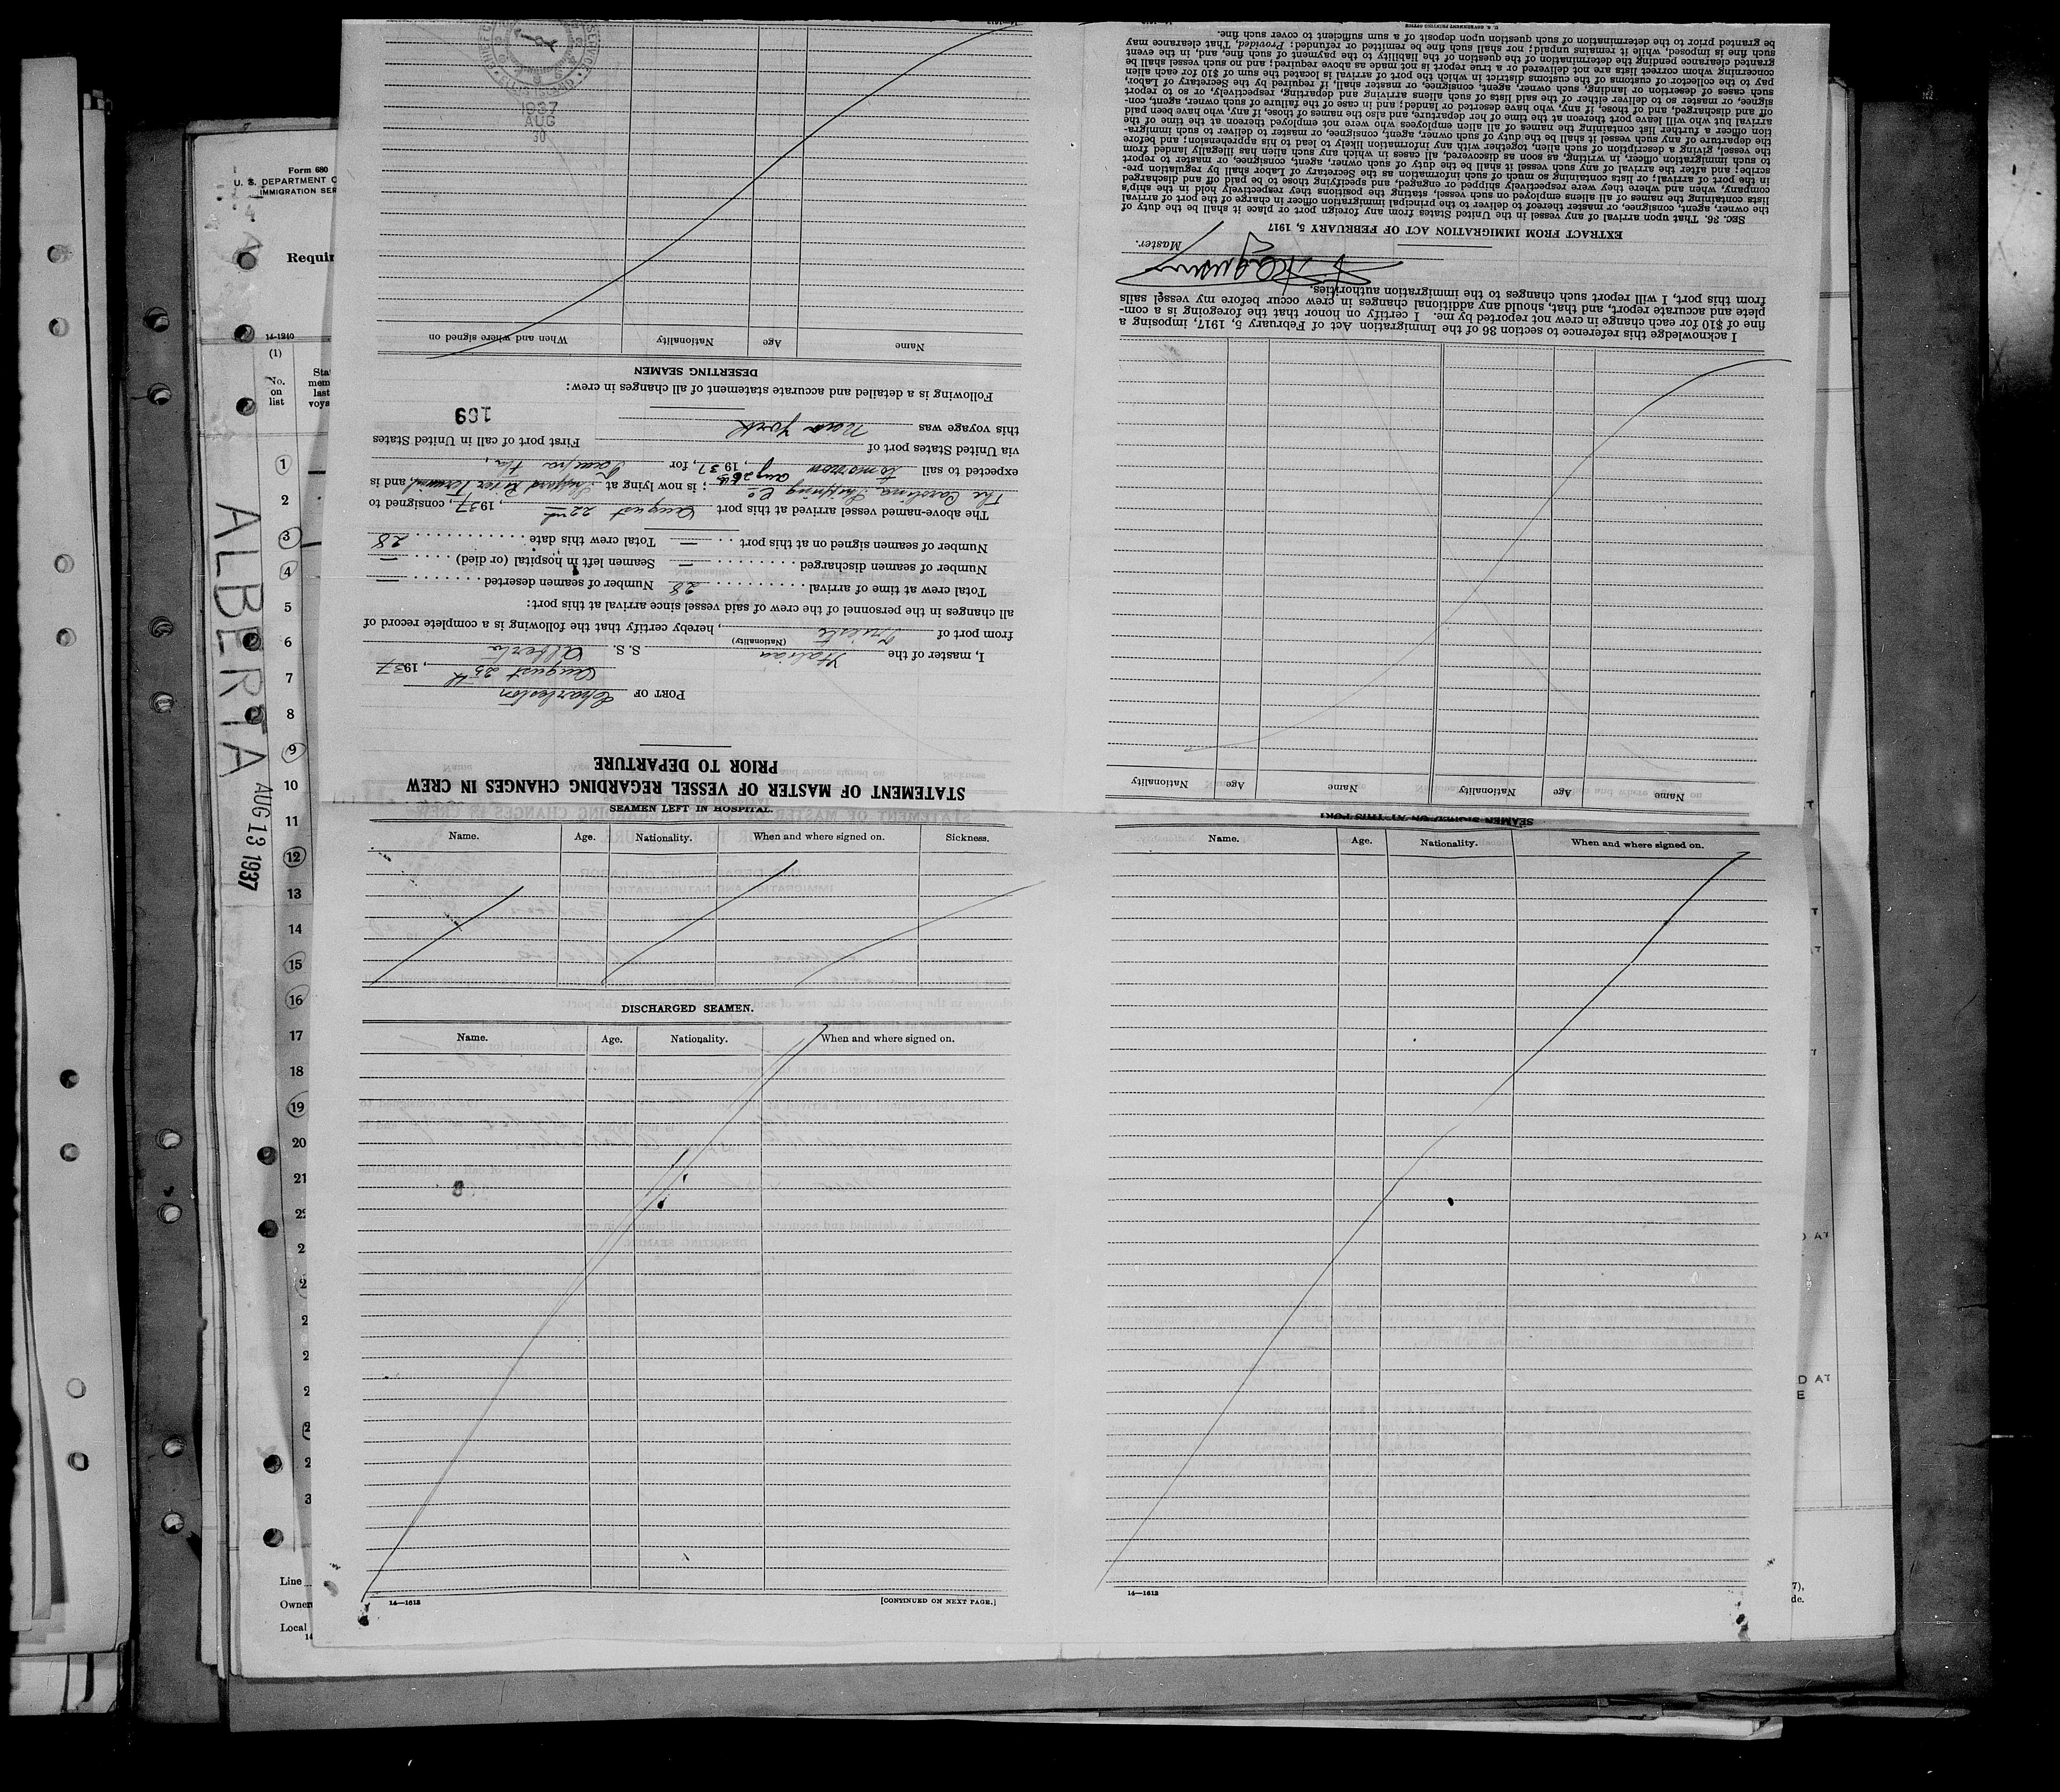 Form 680
U. S. DEPARTMENT O
IMMIGRATION SER
Requir
14-1240
(1)
No.
on
list
Stat
mem
last
voya
1
2
3
4
5
6
7
8
9
10
11
12
13
14
15
16
17
18
19
20
21
22
2
2
2
2
2
2
2
3
ALBERTA
AUG 13 1937
Line
Owner
Local
14
STATEMENT OF MASTER OF VESSEL REGARDING CHANGES IN CREW
PRIOR TO DEPARTURE
PORT OF Charleston
August 25th, 1937
I, master of the Italian S. S. Alberta
(Nationality)
from port of Trieste, hereby certify that the following is a complete record of
all changes in the personnel of the crew of said vessel since arrival at this port:
Total crew at time of arrival 28 Number of seamen deserted —
Number of seamen discharged — Seamen left in hospital (or died) —
Number of seamen signed on at this port — Total crew this date 28
The above-named vessel arrived at this port August 22nd, 1937, consigned to
The Carolina Shipping Co; is now lying at Shippard River Terminal, and is
expected to sail tomorrow Aug 26th, 1937, for Tampa Fla,
via United States port of First port of call in United States
this voyage was New York
169
Following is a detailed and accurate statement of all changes in crew:
DESERTING SEAMEN
Name Age Nationality When and where signed on
1937
AUG
30
14—1613
SEAMEN LEFT IN HOSPITAL.
Name. Age. Nationality. When and where signed on. Sickness.
DISCHARGED SEAMEN.
Name. Age. Nationality. When and where signed on.
14—1613
[CONTINUED ON NEXT PAGE.]
SEAMEN SIGNED ON AT THIS PORT
Name. Age. Nationality. When and where signed on.
14—1613
Name Age Nationality Name Age Nationality
I acknowledge this reference to section 36 of the Immigration Act of February 5, 1917, imposing a
fine of $10 for each change in crew not reported by me. I certify on honor that the foregoing is a com-
plete and accurate report, and that, should any additional changes in crew occur before my vessel sails
from this port, I will report such changes to the immigration authorities.
Master.
EXTRACT FROM IMMIGRATION ACT OF FEBRUARY 5, 1917
Sec. 36. That upon arrival of any vessel in the United States from any foreign port or place it shall be the duty of
the owner, agent, consignee, or master thereof to deliver to the principal immigration officer in charge of the port of arrival
lists containing the names of all aliens employed on such vessel, stating the positions they respectively hold in the ship's
company, when and where they were respectively shipped or engaged, and specifying those to be paid off and discharged
in the port of arrival; or lists containing so much of such information as the Secretary of Labor shall by regulation pre-
scribe; and after the arrival of any such vessel it shall be the duty of such owner, agent, consignee, or master to report
to such immigration officer, in writing, as soon as discovered, all cases in which any such alien has illegally landed from
the vessel, giving a description of such alien, together with any information likely to lead to his apprehension; and before
the departure of any such vessel it shall be the duty of such owner, agent, consignee, or master to deliver to such immigra-
tion officer a further list containing the names of all alien employees who were not employed thereon at the time of the
arrival but who will leave port thereon at the time of her departure, and also the names of those, if any, who have been paid
off and discharged, and of those, if any, who have deserted or landed; and in case of the failure of such owner, agent, con-
signee, or master so to deliver either of the said lists of such aliens arriving and departing, respectively, or so to report
such cases of desertion or landing, such owner, agent, consignee, or master shall, if required by the Secretary of Labor,
pay to the collector of customs of the customs district in which the port of arrival is located the sum of $10 for each alien
concerning whom correct lists are not delivered or a true report is not made as above required; and no such vessel shall be
granted clearance pending the determination of the question of the liability to the payment of such fine, and, in the event
such fine is imposed, while it remains unpaid; nor shall such fine be remitted or refunded: Provided, That clearance may
be granted prior to the determination of such question upon deposit of a sum sufficient to cover such fine.
U. S. GOVERNMENT PRINTING OFFICE
D AT
D AT
E
7),
de.